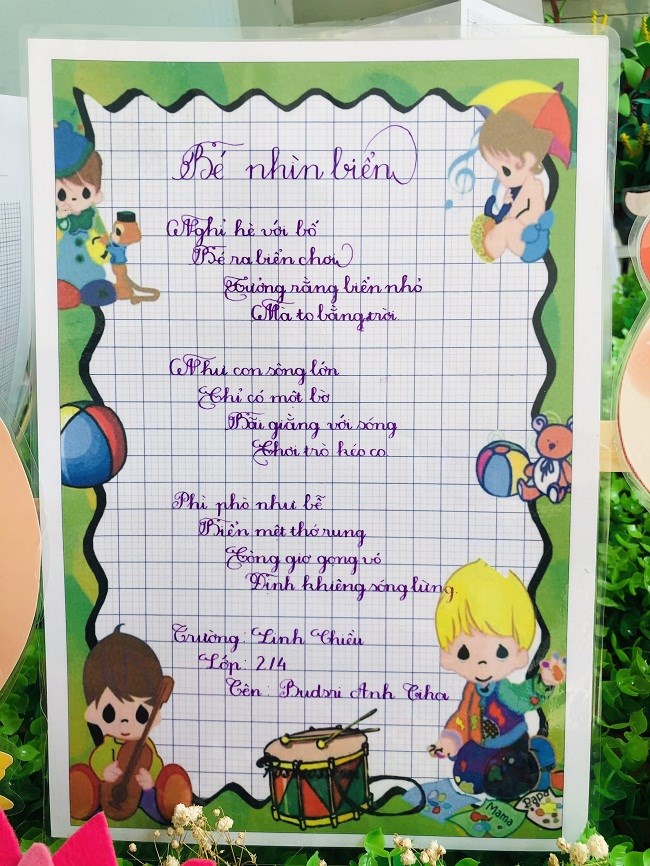 Bé nhìn biển
Nghỉ hè với bố
Bé ra biển chơi
Tưởng rằng biển nhỏ
Mà to bằng trời.
Như con sông lớn
Chỉ có một bờ
Bãi giằng với sóng
Chơi trò kéo co.
Phì phò như bễ
Biển mệt thở rung
Còng giơ gọng vó
Định khiêng sóng lừng.
Trường: Linh Chiểu
Lớp: 2/4
Tên: Budsri Anh Tha
Mama
Papa